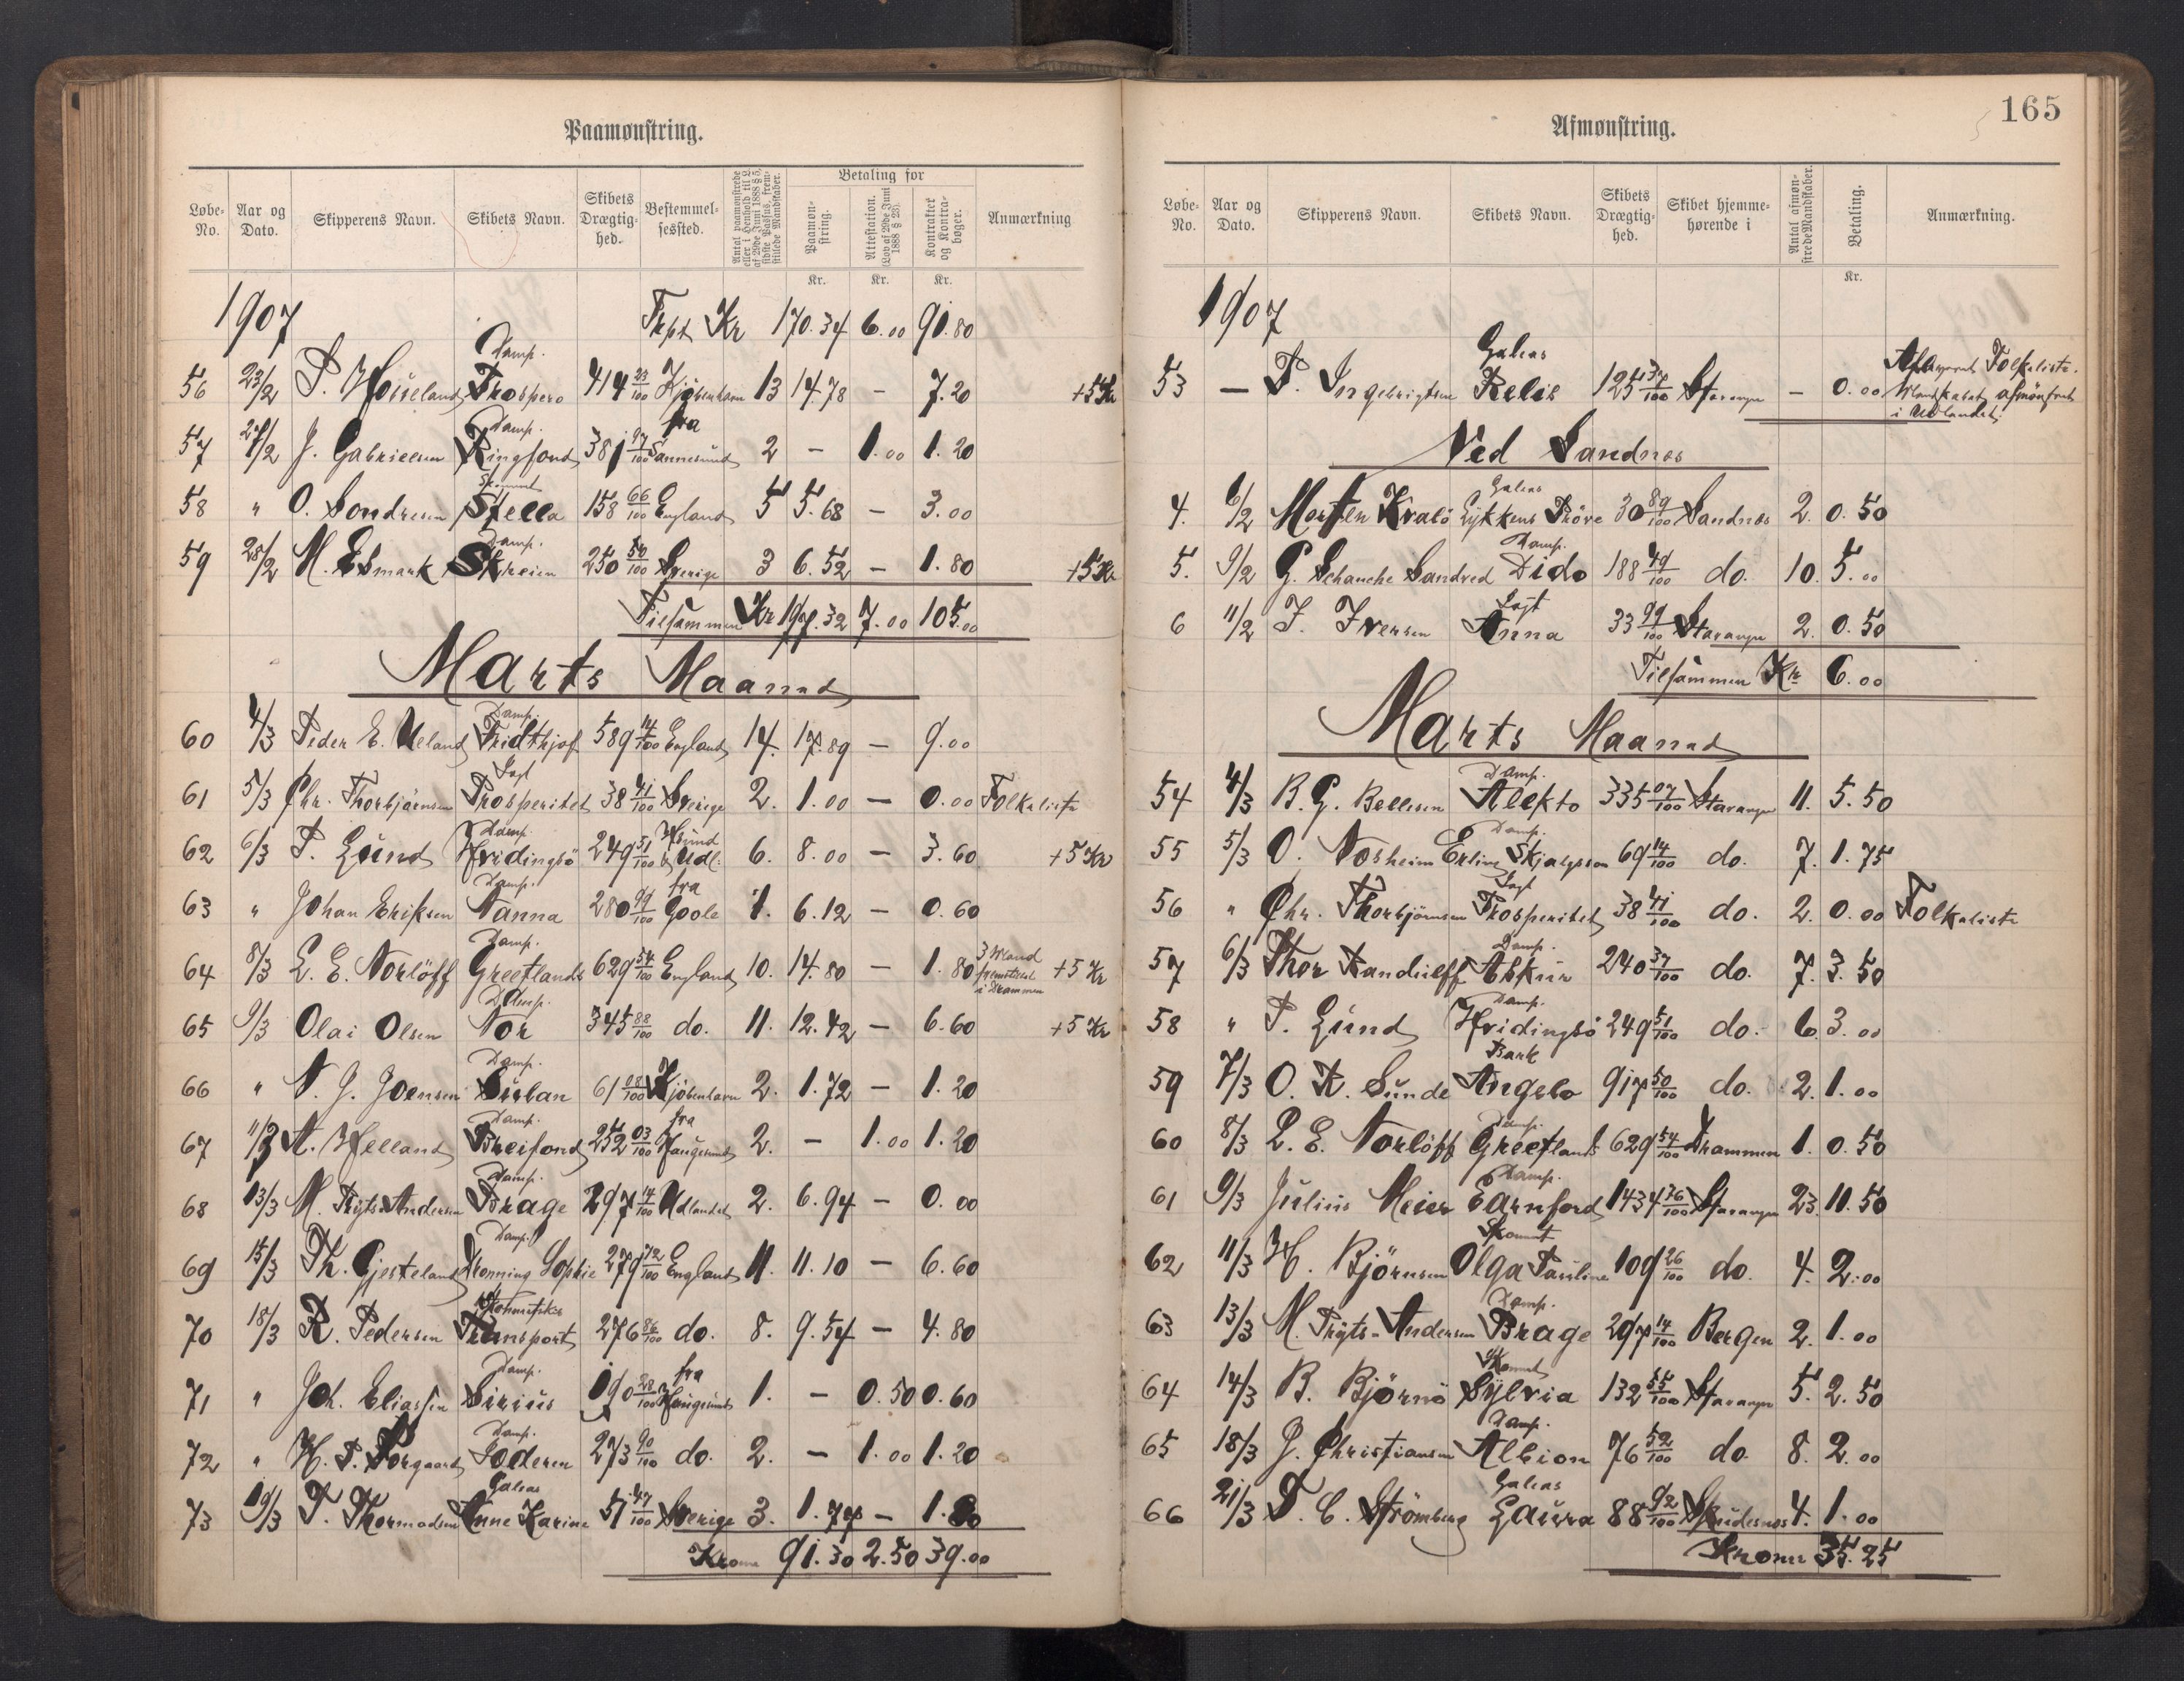 Paamønstring.
Løbe-No. Aar og Dato. Skipperens Navn. Skibets Navn. Skibets Drægtig-hed. Bestemmel-sessted. Antal paamønstrede eller i Henhold til L. af 29de Juni 1888 § 5, sidste Passus, frem-stillede Mandskaber. Betaling for Paamøn-string. Attestation. (Lov af 29de Juni 1888 § 23). Kontrakter og Kontra-bøger. Anmærkning
Kr. Kr. Kr.
1907 Trpt Kr 170.34 6.00 91.80
56 23/2 P. Houeland Damp. Prospero 414 23/100 Kjöbenhavn 13 14.78 – 7.20 +5 Kr
57 27/2 J. Gabrielsen Damp. Ringfond 381 97/100 fra Sannesund 2 – 1.00 1.20
58 " O. Sondresen Skonnert Stella 158 66/100 England 5 5.68 – 3.00
59 28/2 M. Esmark Damp. Skreien 250 50/100 Sverige 3 6.52 – 1.80 +5 Kr
Tilsammen Kr 197.32 7.00 105.00
Marts Maaned
60 4/3 Peder E. Ueland Damp. Fridthjof 589 14/100 England 14. 17.89 – 9.00
61 5/3 Chr. Thorbjörnsen Jagt Prosperitet 38 41/100 Sverige 2. 1.00 – 0.00 Folkeliste
62 6/3 P. Lund Damp. Hvidingsö 249 51/100 Hsund & Udl. 6. 8.00 – 3.60 +5 Kr
63 " Johan Eriksen Damp. Nanna 280 99/100 fra Goole 1. 6.12 – 0.60
64 8/3 L. E. Norlöff Damp. Greetlands 629 54/100 England 10. 14.80 – 1.80 3 Mand fremstillet i Drammen +5 Kr
65 9/3 Olai Olsen Damp. Nor 345 88/100 do. 11. 12.42 – 6.60 +5 Kr
66 " N. J. Joensen Damp. Surlan 61 08/100 Kjöbenhavn 2. 1.72 – 1.20
67 11/3 A. Helland Damp. Breifond 252 03/100 fra Haugesund 2. – 1.00 1.20
68 13/3 M. Prytz-Andersen Damp. Brage 297 14/100 Udlandet 2. 6.94 – 0.00
69 15/3 Th. Gjesteland Damp. Dronning Sophie 279 72/100 England 11. 11.10 – 6.60
70 18/3 R. Pedersen Transport 276 86/100 do. 8. 9.54 – 4.80
71 " Joh. Eliassen Damp. Sirius 190 28/100 fra Haugesund 1. – 0.50 0.60
72 " H. P. Porgaard Damp. Loderen 273 90/100 do. 2. – 1.00 1.20
73 19/3 T. Thormodsen Galeas Anne Karine 51 47/100 Sverige 3. 1.77 – 1.80
Kroner 91.30 2.50 39.00
165
Afmønstring.
Løbe-No. Aar og Dato. Skipperens Navn. Skibets Navn. Skibets Drægtig-hed. Skibet hjemme-hørende i Antal afmøn-strede Mandskaber. Betaling. Anmærkning.
Kr.
1907
53 – P. Ingebrigtsen Galeas Relis 125 37/100 Stavanger – 0.00 Folkeliste. Mandskabet afmönstret i Udlandet.
Ved Sandnes
4. 6/2 Morten Kralö Galeas Lykkens Pröve 30 89/100 Sandnes 2. 0.50
5. 9/2 G. Schanche Sandved Damp. Dido 188 49/100 do. 10. 5.00
6 11/2 J. Iversen Jagt Anna 33 99/100 Stavanger 2. 0.50
Tilsammen Kr. 6.00
Marts Maaned
54 4/3 B. G. Bellesen Damp. Alekto 335 07/100 Stavanger 11. 5.50
55 5/3 O. Nosheim Damp. Erling Skjalgsson 69 14/100 do. 7. 1.75
56 " Chr. Thorbjörnsen Jagt Prosperitet 38 41/100 do. 2. 0.00 Folkeliste
57 6/3 Thor Randulff Damp. Askur 240 37/100 do. 7. 3.50
58 " P. Lund Damp. Hvidingsö 249 51/100 do. 6. 3.00
59 7/3 O. K. Sunde Bark Angelo 917 50/100 do. 2. 1.00
60 8/3 L. E. Norlöff Damp. Greetlands 629 54/100 Drammen 1. 0.50
61 9/3 Julius Meier Damp. Earnford 1434 76/100 Stavanger 23. 11.50
62 11/3 H. Björnsen Skonnert Olga Pauline 109 26/100 do. 4. 2.00
63 13/3 M. Prytz-Andersen Damp. Brage 297 14/100 Bergen 2. 1.00
64 14/3 B. Björnö Skonnert Sylvia 132 55/100 Stavanger 5. 2.50
65 18/3 J. Christiansen Damp. Albion 76 52/100 do. 8. 2.00
66 21/3 P. C. Strömberg Galeas Laura 88 92/100 Skudesnes 4. 1.00
Kroner 35.25